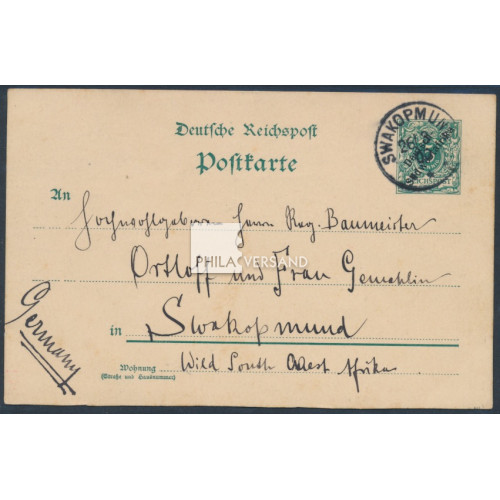 Deutsche Reichspost
Postkarte
SWAKOPMUND
An
Hochwohlgeboren Herrn Reg. Baumeister
PHILA VERSAND
Ortloff und Frau Gemahlin
in Swakopmund
Wild South West Afrika
Wohnung
(Straße und Hausnummer)
Germany